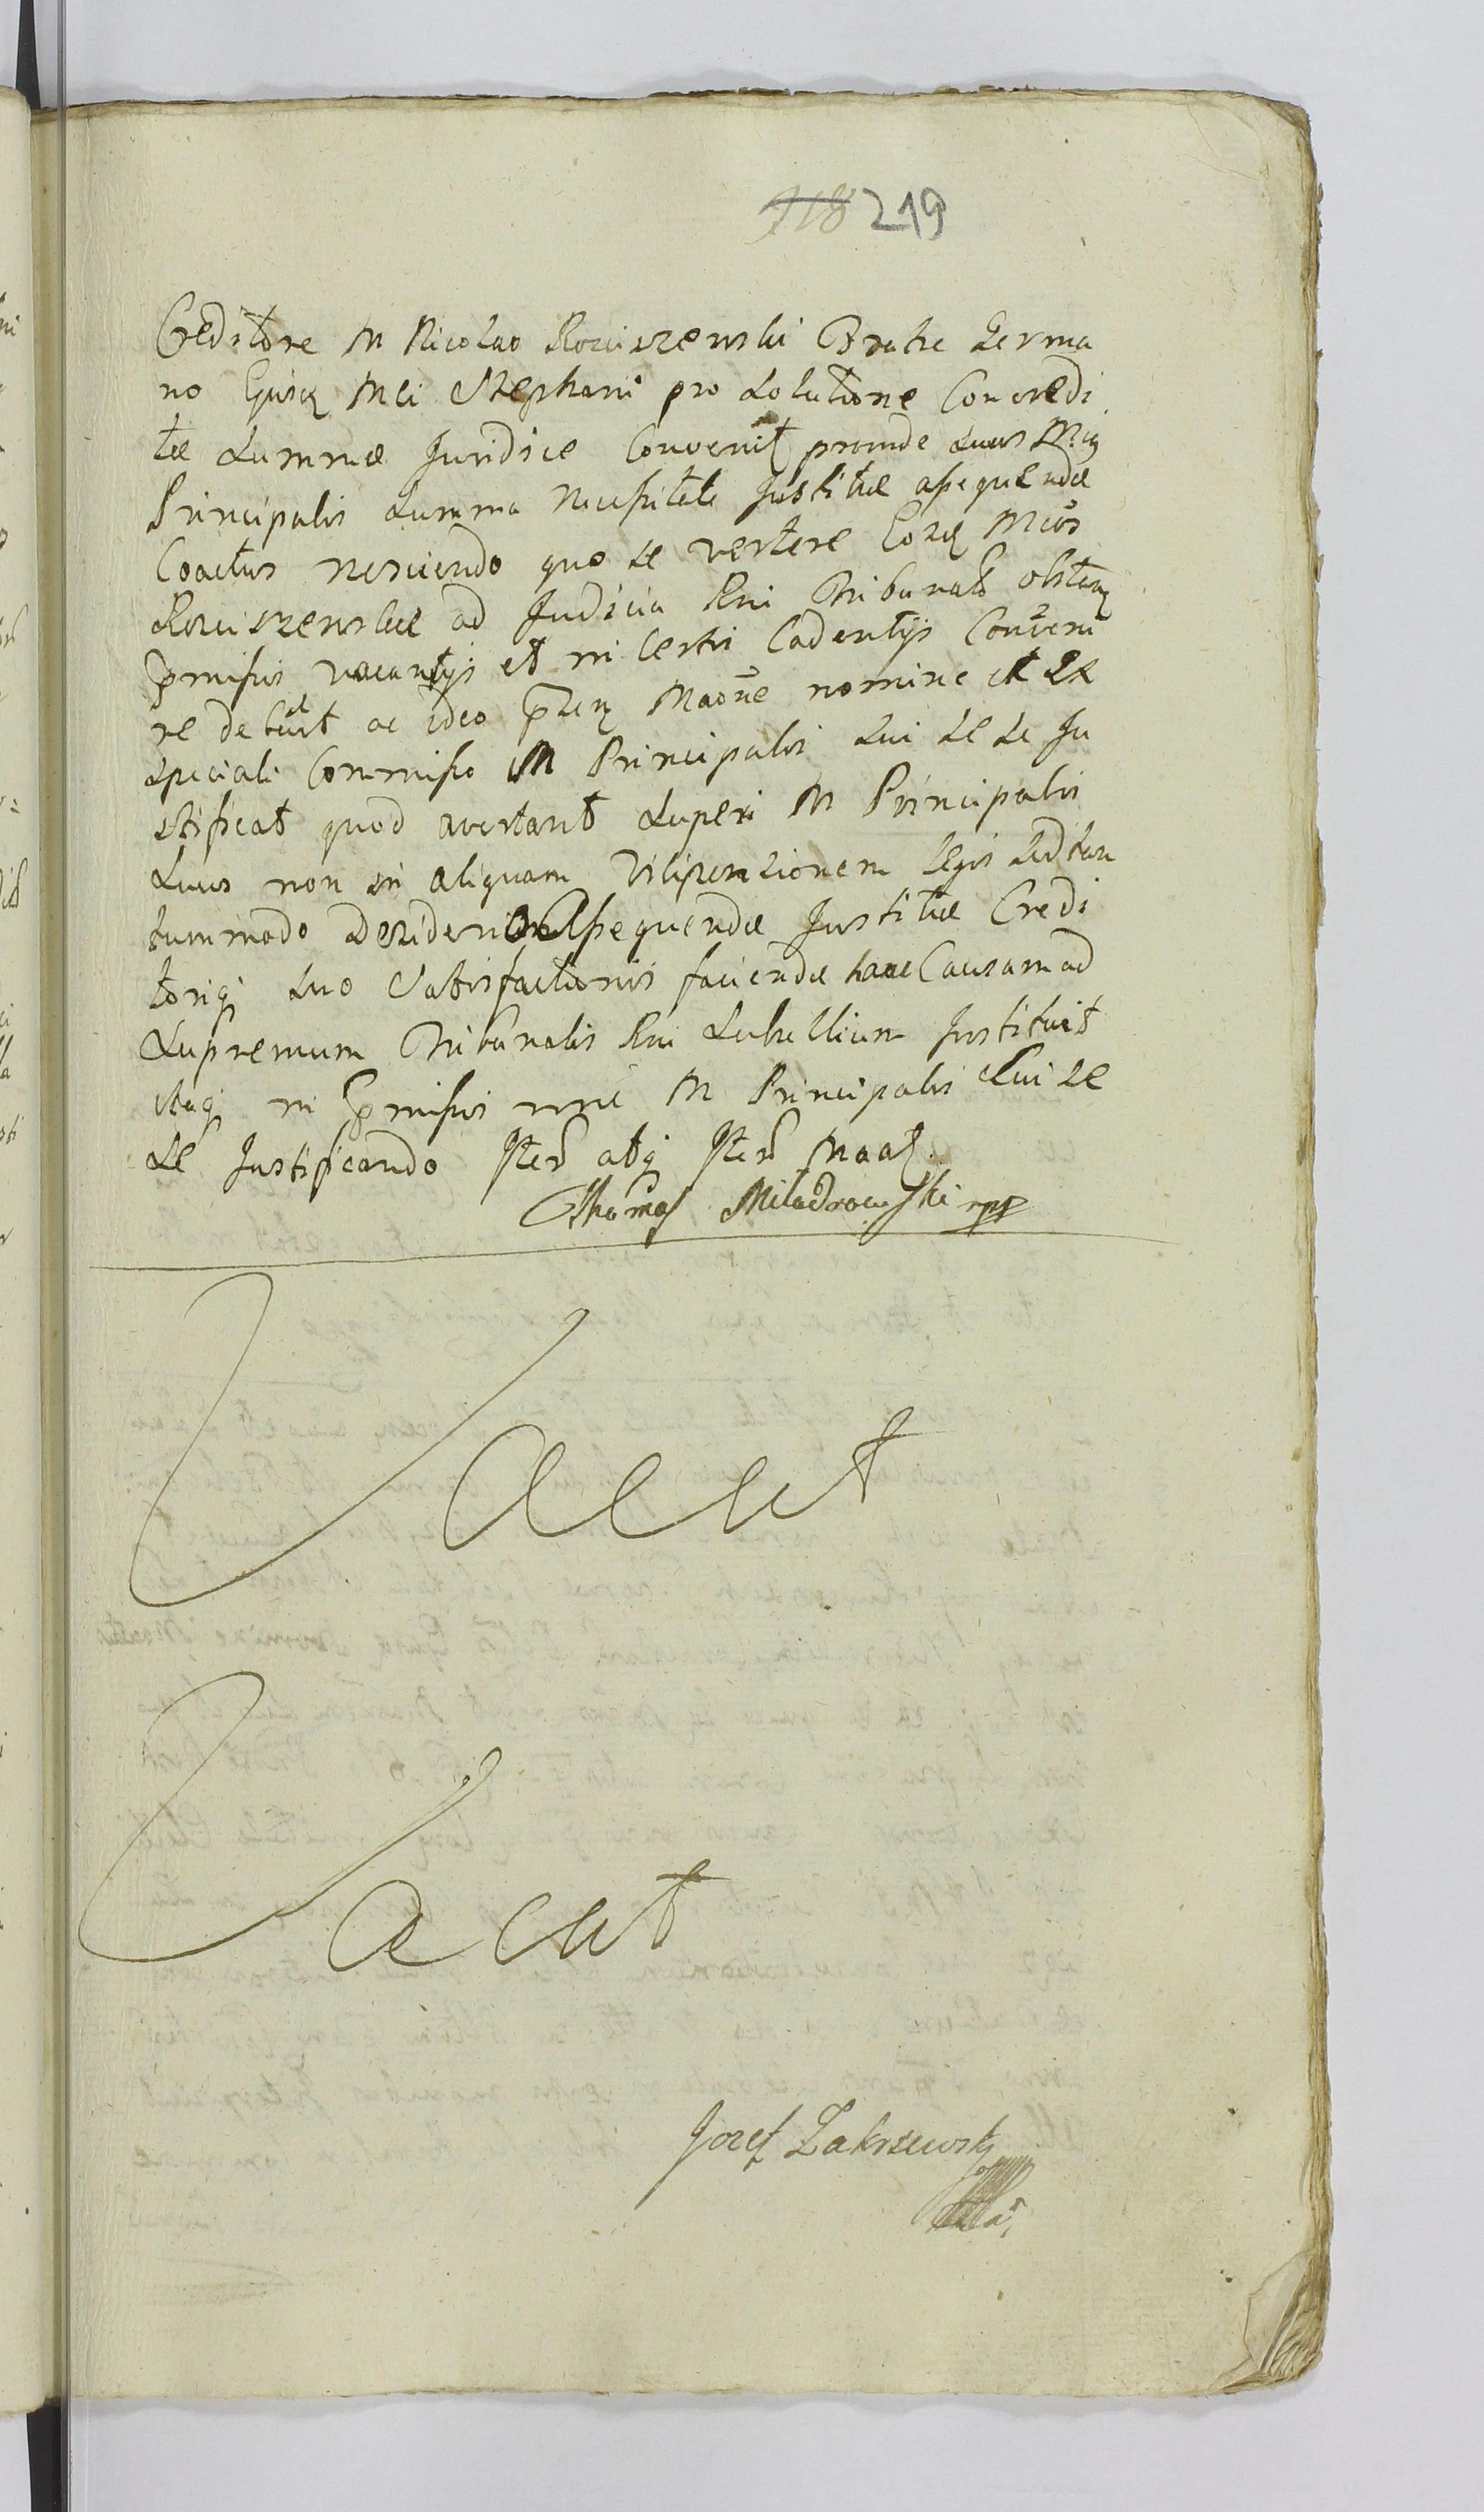 718 219
Creditore M Nicolao Rosciszewski Fratre Germa
no Ejusq Mci Stephani pro Solutione Concredi
tæ Summæ Juridice Convenit proinde suus M
Principalis summa Necessitate Justitiæ assequendæ
Coactus nesciendo quo se vertere Eosq Mcos
Rosciszewskie ad Judicia Rni Tribunals
præmissis vacantijs et in Certis Cadentijs Conveni
re debuit ac ideo Manae nomine et ex
speciali Commisso M Principalis sui se se Ju
stificat quod avertant Superi M Principalis
suus non in aliquam Vilipensionem legis sed tan
tummodo Desiderio Assequendæ Justitiæ Credi
toriq suo Satisfactionis faciendæ hanc Causam ad
Supremum Tribunalis Rni Lublinum Instituit
itaq in præmissis M Principalis sui se
se Justificando Iter atq Iter Maat
Thomas Miladrowski mpp
Vacat
Vacat
Jozef Zakrzewsky